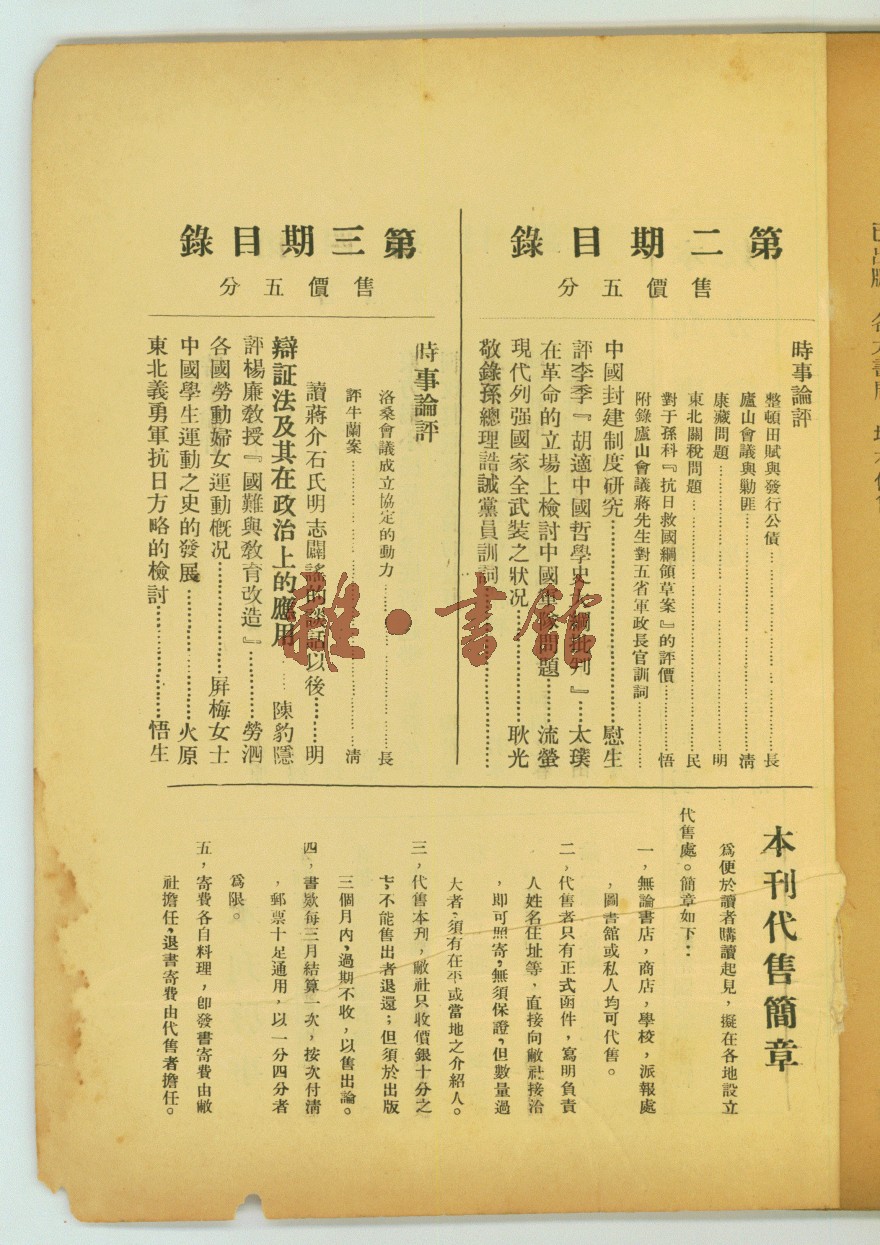 第二期目錄
售價五分
時事論評
整頓田賦與發行公債………長
廬山會議與勦匪………清
康藏問題………明
東北關稅問題………民
對于孫科『抗日救國綱領草案』的評價………悟
附錄廬山會議蔣先生對五省軍政長官訓詞………
中國封建制度研究………慰生
評李季『胡適中國哲學史大綱批判』………太璞
在革命的立場上檢討中國軍隊問題………流螢
現代列强國家全武裝之狀況………耿光
敬錄孫總理誥誡黨員訓詞………
第三期目錄
售價五分
時事論評
洛桑會議成立協定的動力………長
評牛蘭案………清
讀蔣介石氏明志闢謠的談話以後………明
辯証法及其在政治上的應用………陳豹隱
評楊廉教授『國難與教育改造』………勞泗
各國勞動婦女運動概況………屏梅女士
中國學生運動之史的發展………火原
東北義勇軍抗日方略的檢討………悟生
本刊代售簡章
爲便於讀者購讀起見，擬在各地設立
代售處。簡章如下：
一，無論書店，商店，學校，派報處
，圖書舘或私人均可代售。
二，代售者只有正式函件，寫明負責
人姓名住址等，直接向敝社接洽
，即可照寄，無須保證，但數量過
大者，須有在平或當地之介紹人。
三，代售本刋，敝社只收價銀十分之
七，不能售出者退還；但須於出版
三個月內，過期不收，以售出論。
四，書欵每三月結算一次，按次付清
，郵票十足通用，以一分四分者
爲限。
五，寄費各自料理，卽發書寄費由敝
社擔任，退書寄費由代售者擔任。
雜·書館